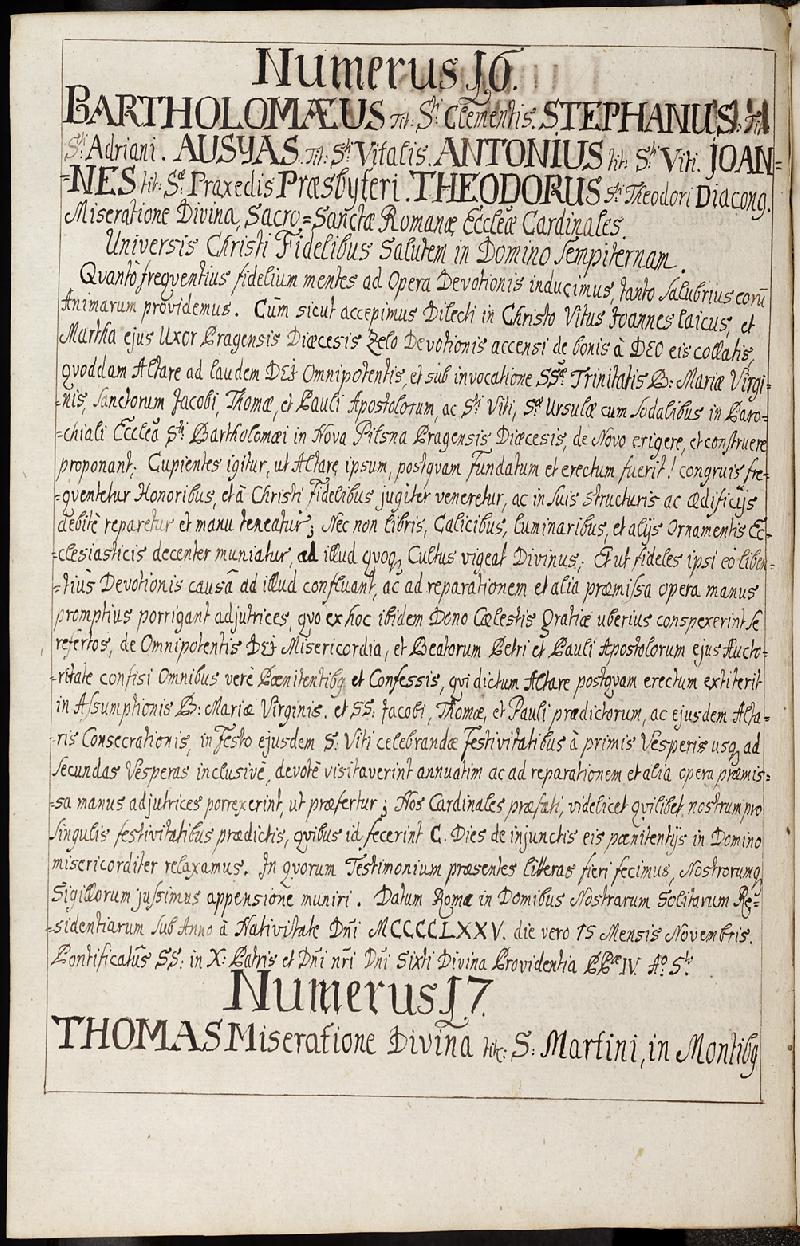 Numerus 16.
BARTHOLOMÆUS tit. Sti Clementis. STEPHANUS. tit.
Sti Adriani. AUSYAS. tit. Sti Vitalis. ANTONIUS tit. Sti Viti. JOAN=
=NES tit. Sæ Praxedis Præsbyteri. THEODORUS Sti Theodori Diacong.
Miseratione Divina, Sacro=Sanctæ Romanæ Eccleæ Cardinales.
Universis Christi Fidelibus Salutem in Domino Sempiternam.
Quantò freqventius fidelium mentes ad Opera Devotionis inducimus, tanto Salubrius corū
Animarum providemus. Cùm sicut accepimus Dilecti in Christo Vitus Joannes Laicus, et
Martha ejus Uxor Pragensis Diæcesis Zelo Devotionis accensi de bonis à DEO eis collatis,
qvoddam Altare ad laudem DEI Omnipotentis, et sub invocatione SSæ Trinitatis B: Mariæ Virgi=
=nis, Sanctorum Jacobi, Thomæ, et Pauli Apostolorum, ac Sti Viti, Sæ Ursulæ cum Sodalibus in Paro=
=chiali Ecclea Sti Bartholomæi in Nova Pilsna Pragensis Diæcesis, de Novo erigere, et construere
proponant; Cupientes igitur, ut Altare ipsum, postqvam Fundatum et erectum fuerit! congruis fre=
=qventetur Honoribus, et à Christi Fidelibus jugiter veneretur, ac in suis structuris ac ædificijs
debitè reparetur et manu teneatur; Nec non libris, Calicibus, luminaribus, et alijs Ornamentis Ec=
=clesiasticis decenter muniatur, ad illud qvoq3 Cultus vigeat Divinus,: Et ut fideles ipsi eò liben=
=tiùs Devotionis causâ ad illud confluant, ac ad reparationem et alia præmissa opera manus
promptius porrigant adjutrices, qvo ex hoc ibidem Dono Cælestis gratiæ uberius conspexerint se
refertos, de Omnipotentis DEI Misericordia, et Beatorum Petri et Pauli Apostolorum ejus Aucto=
=ritate confisi Omnibus verè Pænitentibq et Confessis, qvi dictum Altare postqvam erectum extiterit
in Assumptionis B: Mariæ Virginis. et SS: Jacobi, Thomæ, et Pauli prædictorum, ac ejusdem Alta=
=ris Consecrationis, in Festo ejusdem S: Viti celebrandæ Festivitatibus à primis Vesperis usq3 ad
Secundas Vesperas inclusivè, devotè visitaverint annuatim ac ad reparationem et alia opera præmis=
=sa manus adjutrices porrexerint, ut præfertur; Nos Cardinales præfati, videlicet qvilibet nostrum pro
Singulis festivitatibus prædictis, qvibus id fecerint C. Dies de injunctis eis pænitentijs in Domino
misericorditer relaxamus. In qvorum Testimonium præsentes litteras fieri fecimus, Nostrorumq3
Sigillorum jussimus appensione muniri. Datum Romæ in Domibus Nostrarum Solitarum Re=
=sidentiarum Sub Anno à Nativitate Dñi MCCCCLXXV. die vero 15 Mensis Novembris.
Pontificatûs SS: in X: Patris et Dñi nri Dñi Sixti Divina Providentia PPæ IV. Ao 5to
Numerus 17.
THOMAS Miseratione Divina tit: S: Martini, in Montibq